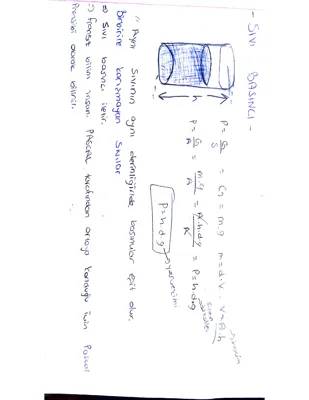 - SIVI BASINCI -
P = G/S = G = m.g m = d.V V = A.h
P = G/A = m.g/A = A.h.d.g/A = P = h.d.g
h
P = h.d.g
" Aynı sıvının aynı derinliğinde basınçlar eşit olur.
Birbirine karışmayan sıvılar
Sıvı basıncı iletir.
Fransız bilim insanı PASCAL tarafından ortaya konduğu için Pascal
Prensibi olarak bilinir.